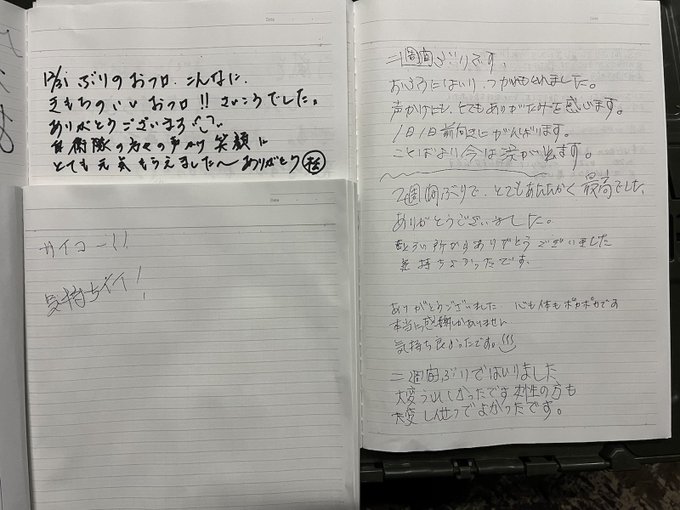 12/31 ぶりのおフロ. こんなに.
きもちのいい おフロ!! さいこうでした。
ありがとうございます
自衛隊の方々の声かけ 笑顔に
とても元気もらえました〜 ありがとう
サイコー!!
気持ちイイ!
二週間ぶりです。
おふろにはいり、つかれもとれました。
声かけにも、とてもありがたみを感じます。
1日1日前向きにがんばります。
ことばより今は涙が出ます。
2週間ぶりで、とてもあたたかく最高でした、
ありがとうございました。
所からありがとうございました
気持ちよかったです。
ありがとうございました 心も体もポカポカです
本当に感謝しかありません
気持ち良かったです。
二週間ぶりではいりました
大変うれしかったです 女性の方も
大変しんせつでよかったです。